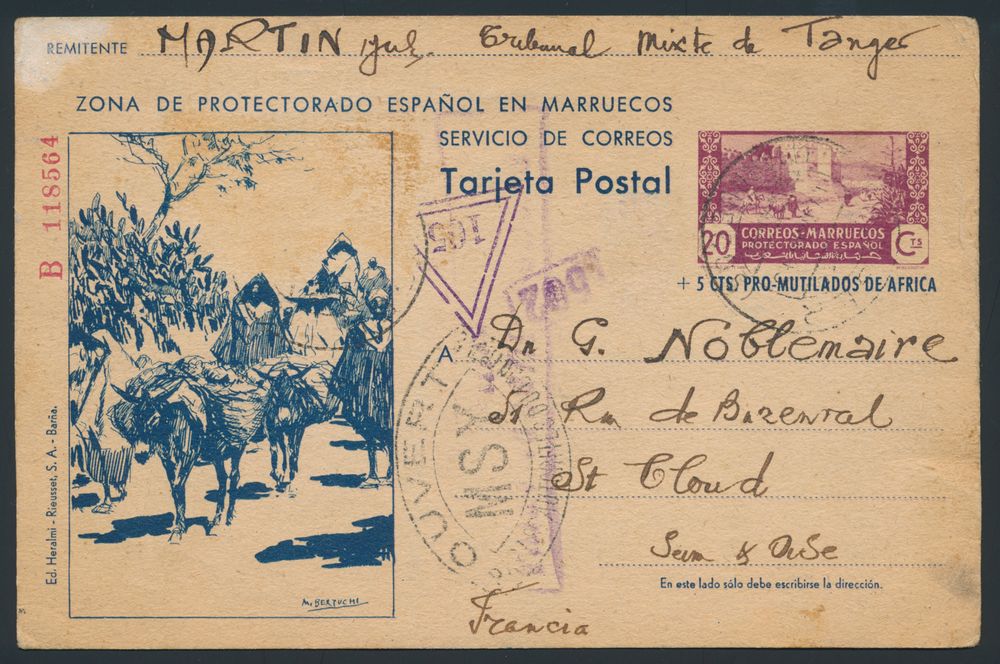 REMITENTE MARTIN Tribunal Mixte de Tanger
ZONA DE PROTECTORADO ESPAÑOL EN MARRUECOS
SERVICIO DE CORREOS
Tarjeta Postal
B 118564
105
20 CORREOS-MARRUECOS CTS
PROTECTORADO ESPAÑOL
+ 5 CTS. PRO-MUTILADOS DE AFRICA
A Dr G. Noblemaire
51 Rue de Buzenval
St Cloud
Seine & Oise
Francia
En este lado sólo debe escribirse la dirección.
OUVERT
Ed. Heralmi - Rieusset, S. A. - Barña.
M. BERTUCHI